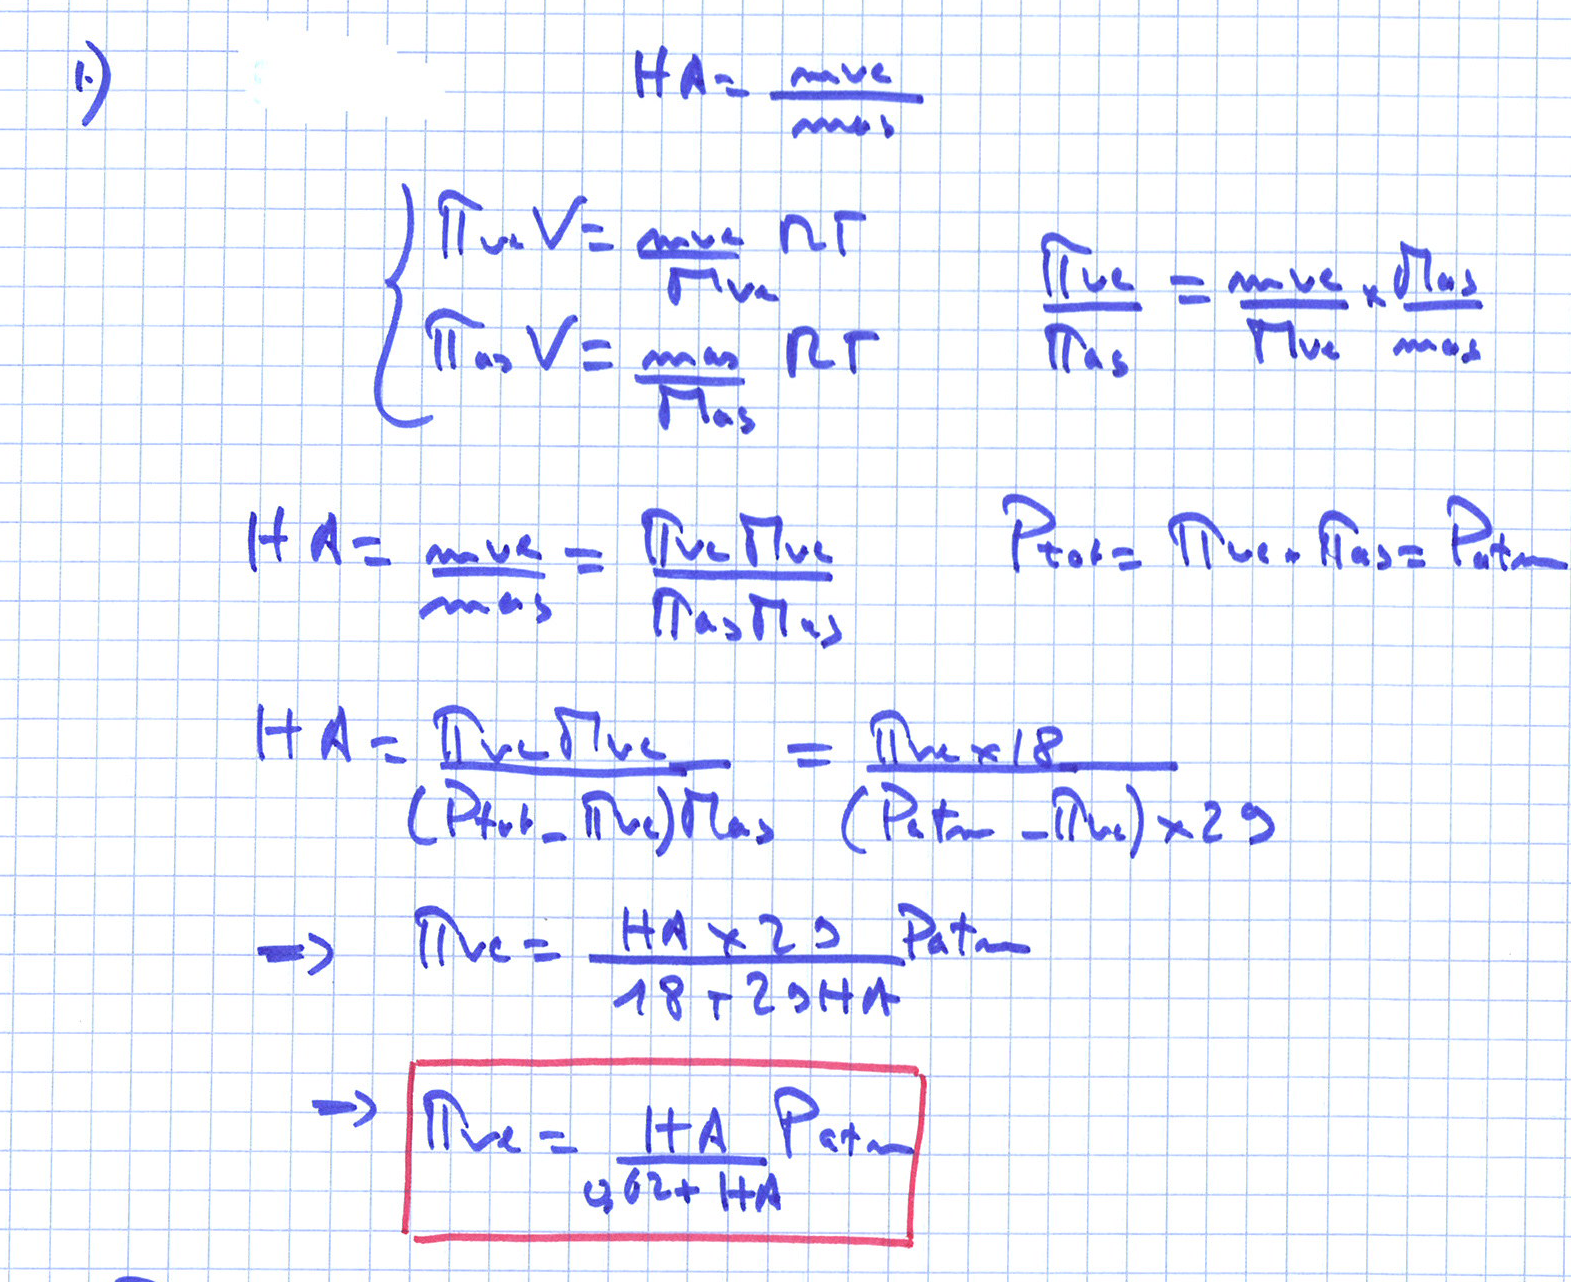 1.)
HA = mve / mas
Πve V = mve / Mve RT
Πas V = mas / Mas RT
Πve / Πas = mve / Mve × Mas / mas
HA = mve / mas = Πve Mve / Πas Mas
Ptot = Πve + Πas = Patm
HA = Πve Mve / (Ptot - Πve) Mas = Πve × 18 / (Patm - Πve) × 29
=> Πve = HA × 29 / 18 + 29HA Patm
=> Πve = HA / 0,62 + HA Patm